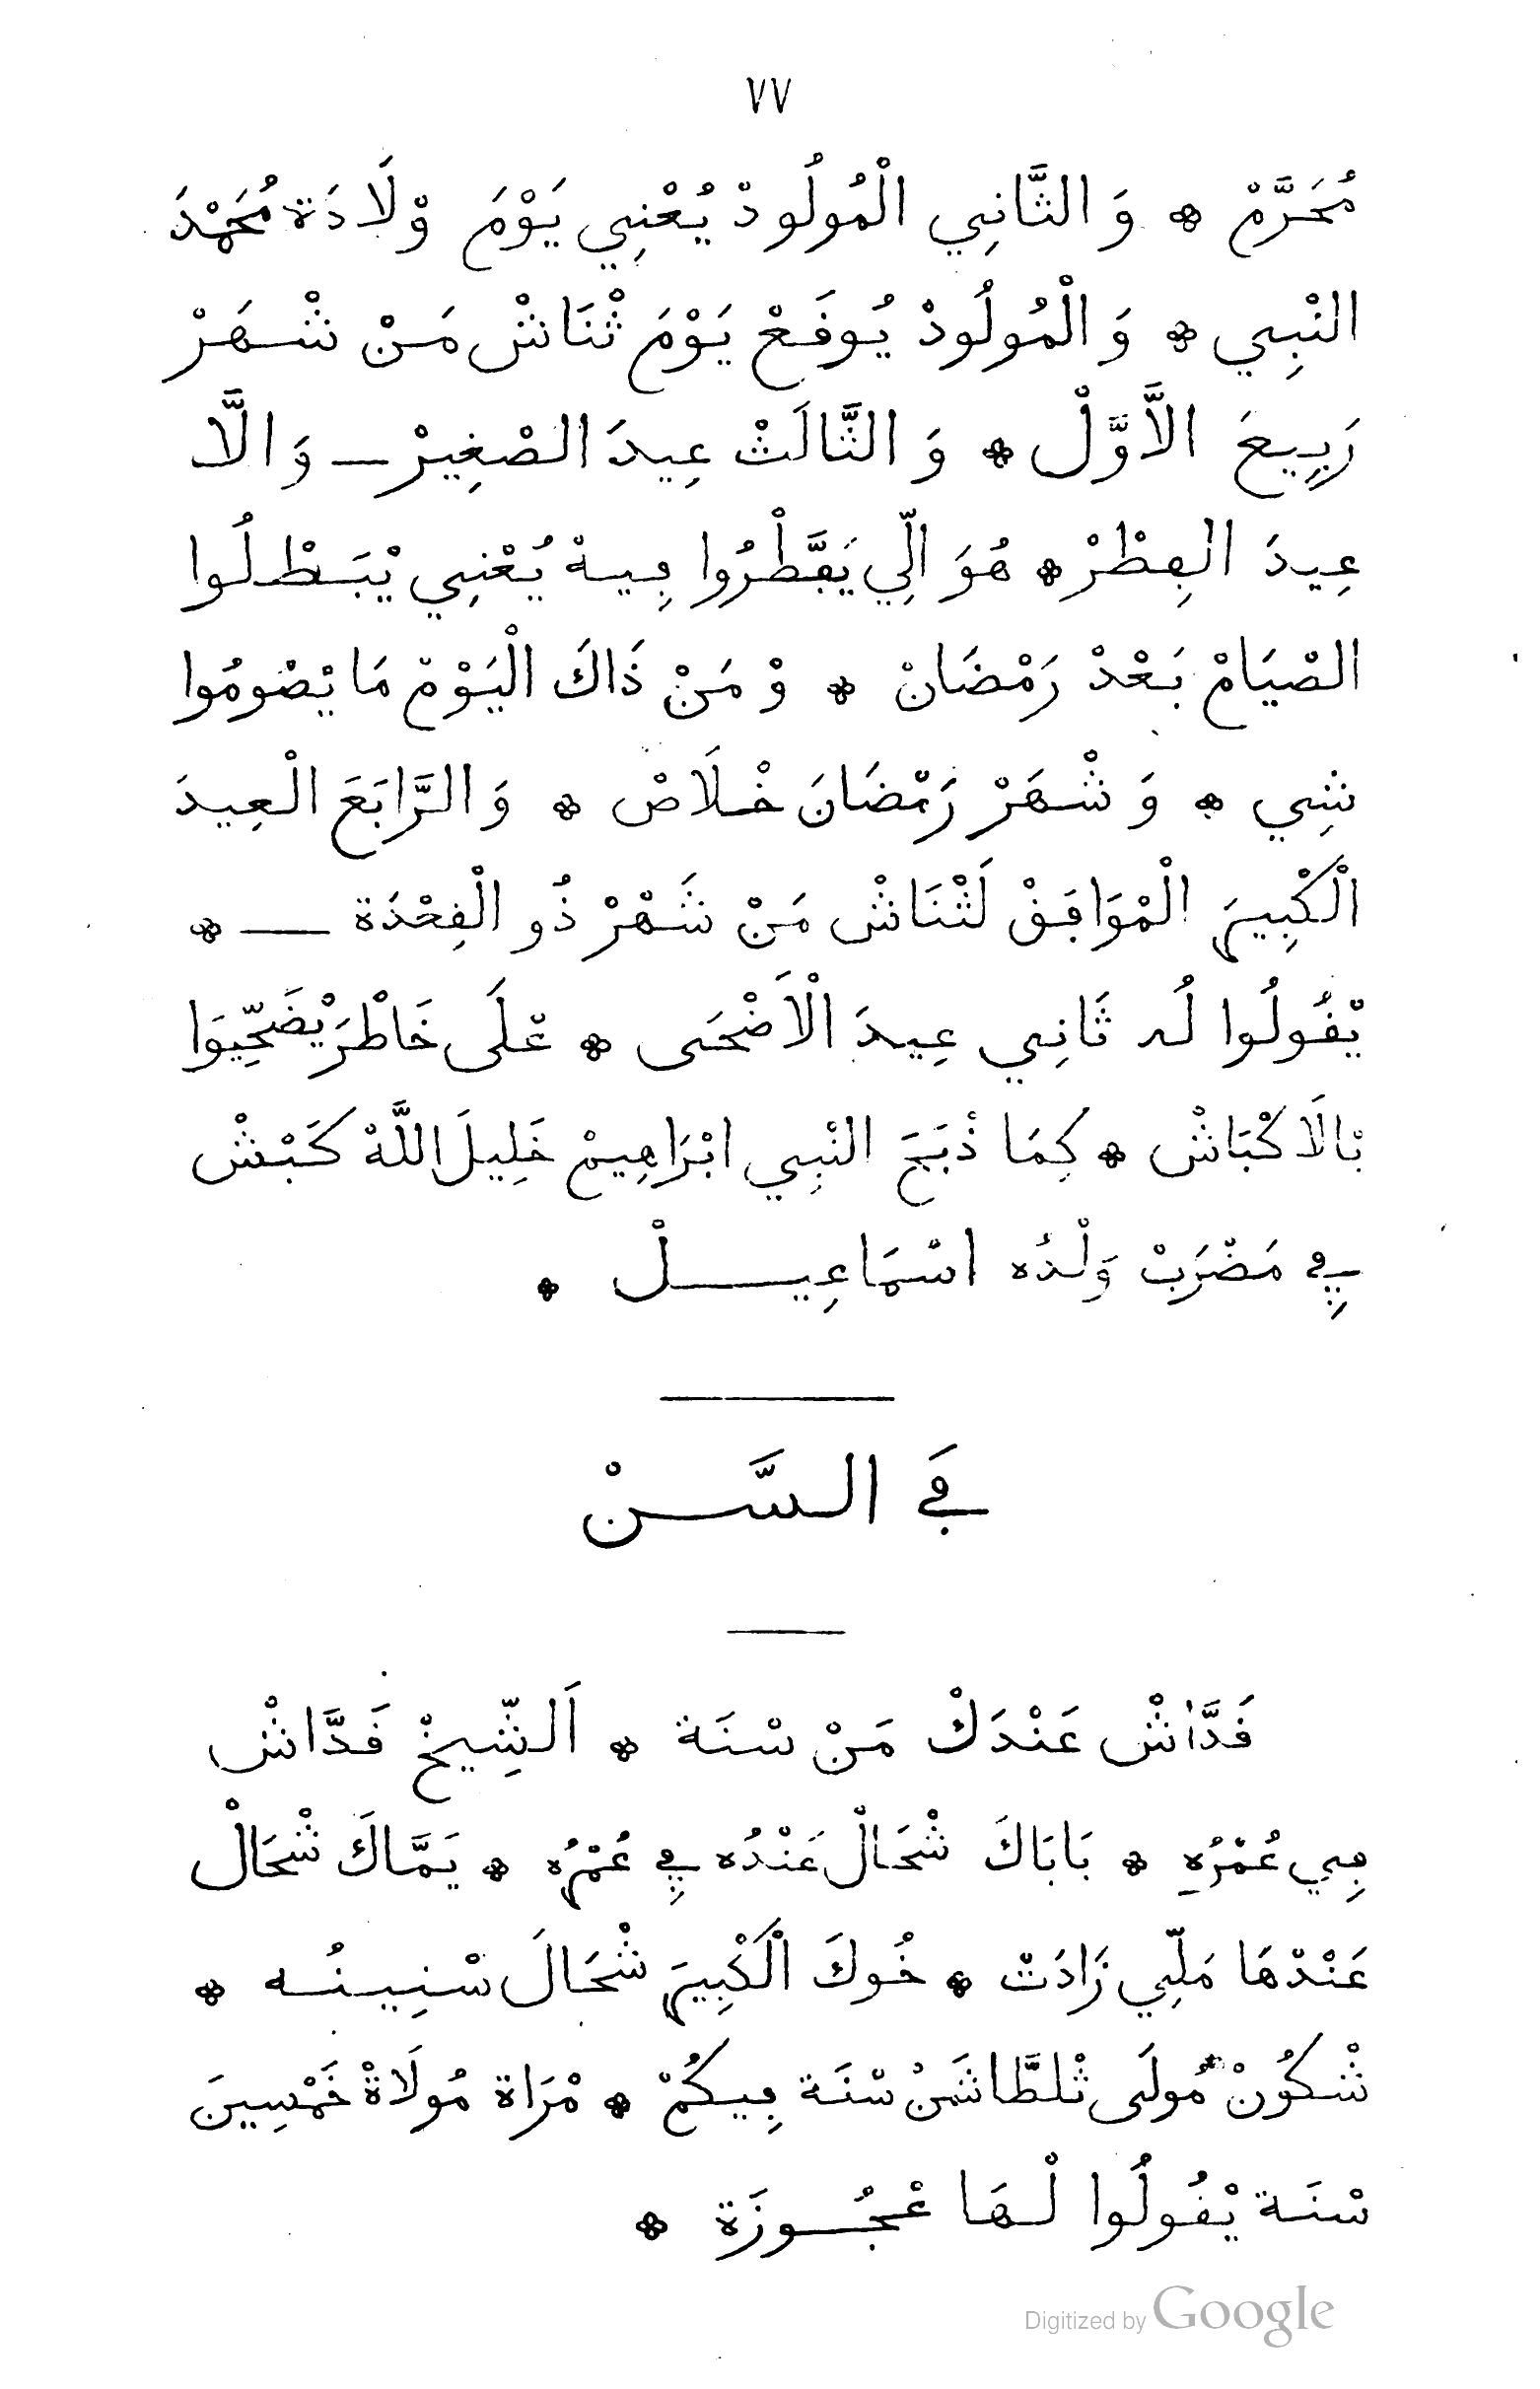 ٧٧
مُحَرَّمْ * وَالثَّانِي الْمُولُودْ يُعْنِي يَوْمَ وْلَادَة مُحَمْدَ
النْبِي * وَالْمُولُودْ يُوفَعْ يَوْمَ ثْنَاشْ مَنْ شْهَرْ
رَبِيعَ الَاَّوَّلْ * وَالثَّالَثْ عِيدَ الصْغِيرْ ـ وَالَّا
عِيدَ الڢِطْرْ * هُوَ الِّي يَڢَّطْرُوا ڢِيهْ يُعْنِي يْبَطْلُوا
الصْيَامْ بَعْدْ رَمْضَانْ * وْمَنْ ذَاكَ الْيَوْمْ مَا يْصْومُوا
شِي * وَشْهَرْ رَمْضَانَ خْلَاصْ * وَالرَّابَعَ الْعِيدَ
الْكْبِيرَ الْمْوَاڢَفْ لَثْنَاشْ مَنْ شَهْرْ ذُو الْفِعْدَة ـ *
يْفُولُوا لُه ثَانِي عِيدَ الْاَضْحَى * عْلَى خَاطْرَ يْضَحِّيوَا
بْالَاكْبَاشْ * كِمَا ذْبَحَ النْبِي ابْرَاهِيمْ خَلِيلَ اللَّهْ كَبْشْ
ڢِي مَضْرَبْ وَلْدُه اسْمَاعِيلْ *
ڢَي السَّنْ
فَدَّاشْ عَنْدَكْ مَنْ سْنَة * اَلشِّيخْ فَدَّاشْ
ڢِي عُمْرُهِ * بَابَاكَ شْحَالْ عَنْدُه ڢِي عُمْرُه * يَمَّاكَ شْحَالْ
عَنْدْهَا مَلِّي زَادَتْ * خُوكَ الْكْبِيرَ شْحَالَ سْنِينُه *
شْكُونْ مُولَى ثْلطَّاشَنْ سْنَة ڢِيكُمْ * مْرَاة مُولَاةْ خَمْسِينَ
سْنَة يْفُولُوا لْهَا عْجُوزَة *
Digitized by Google